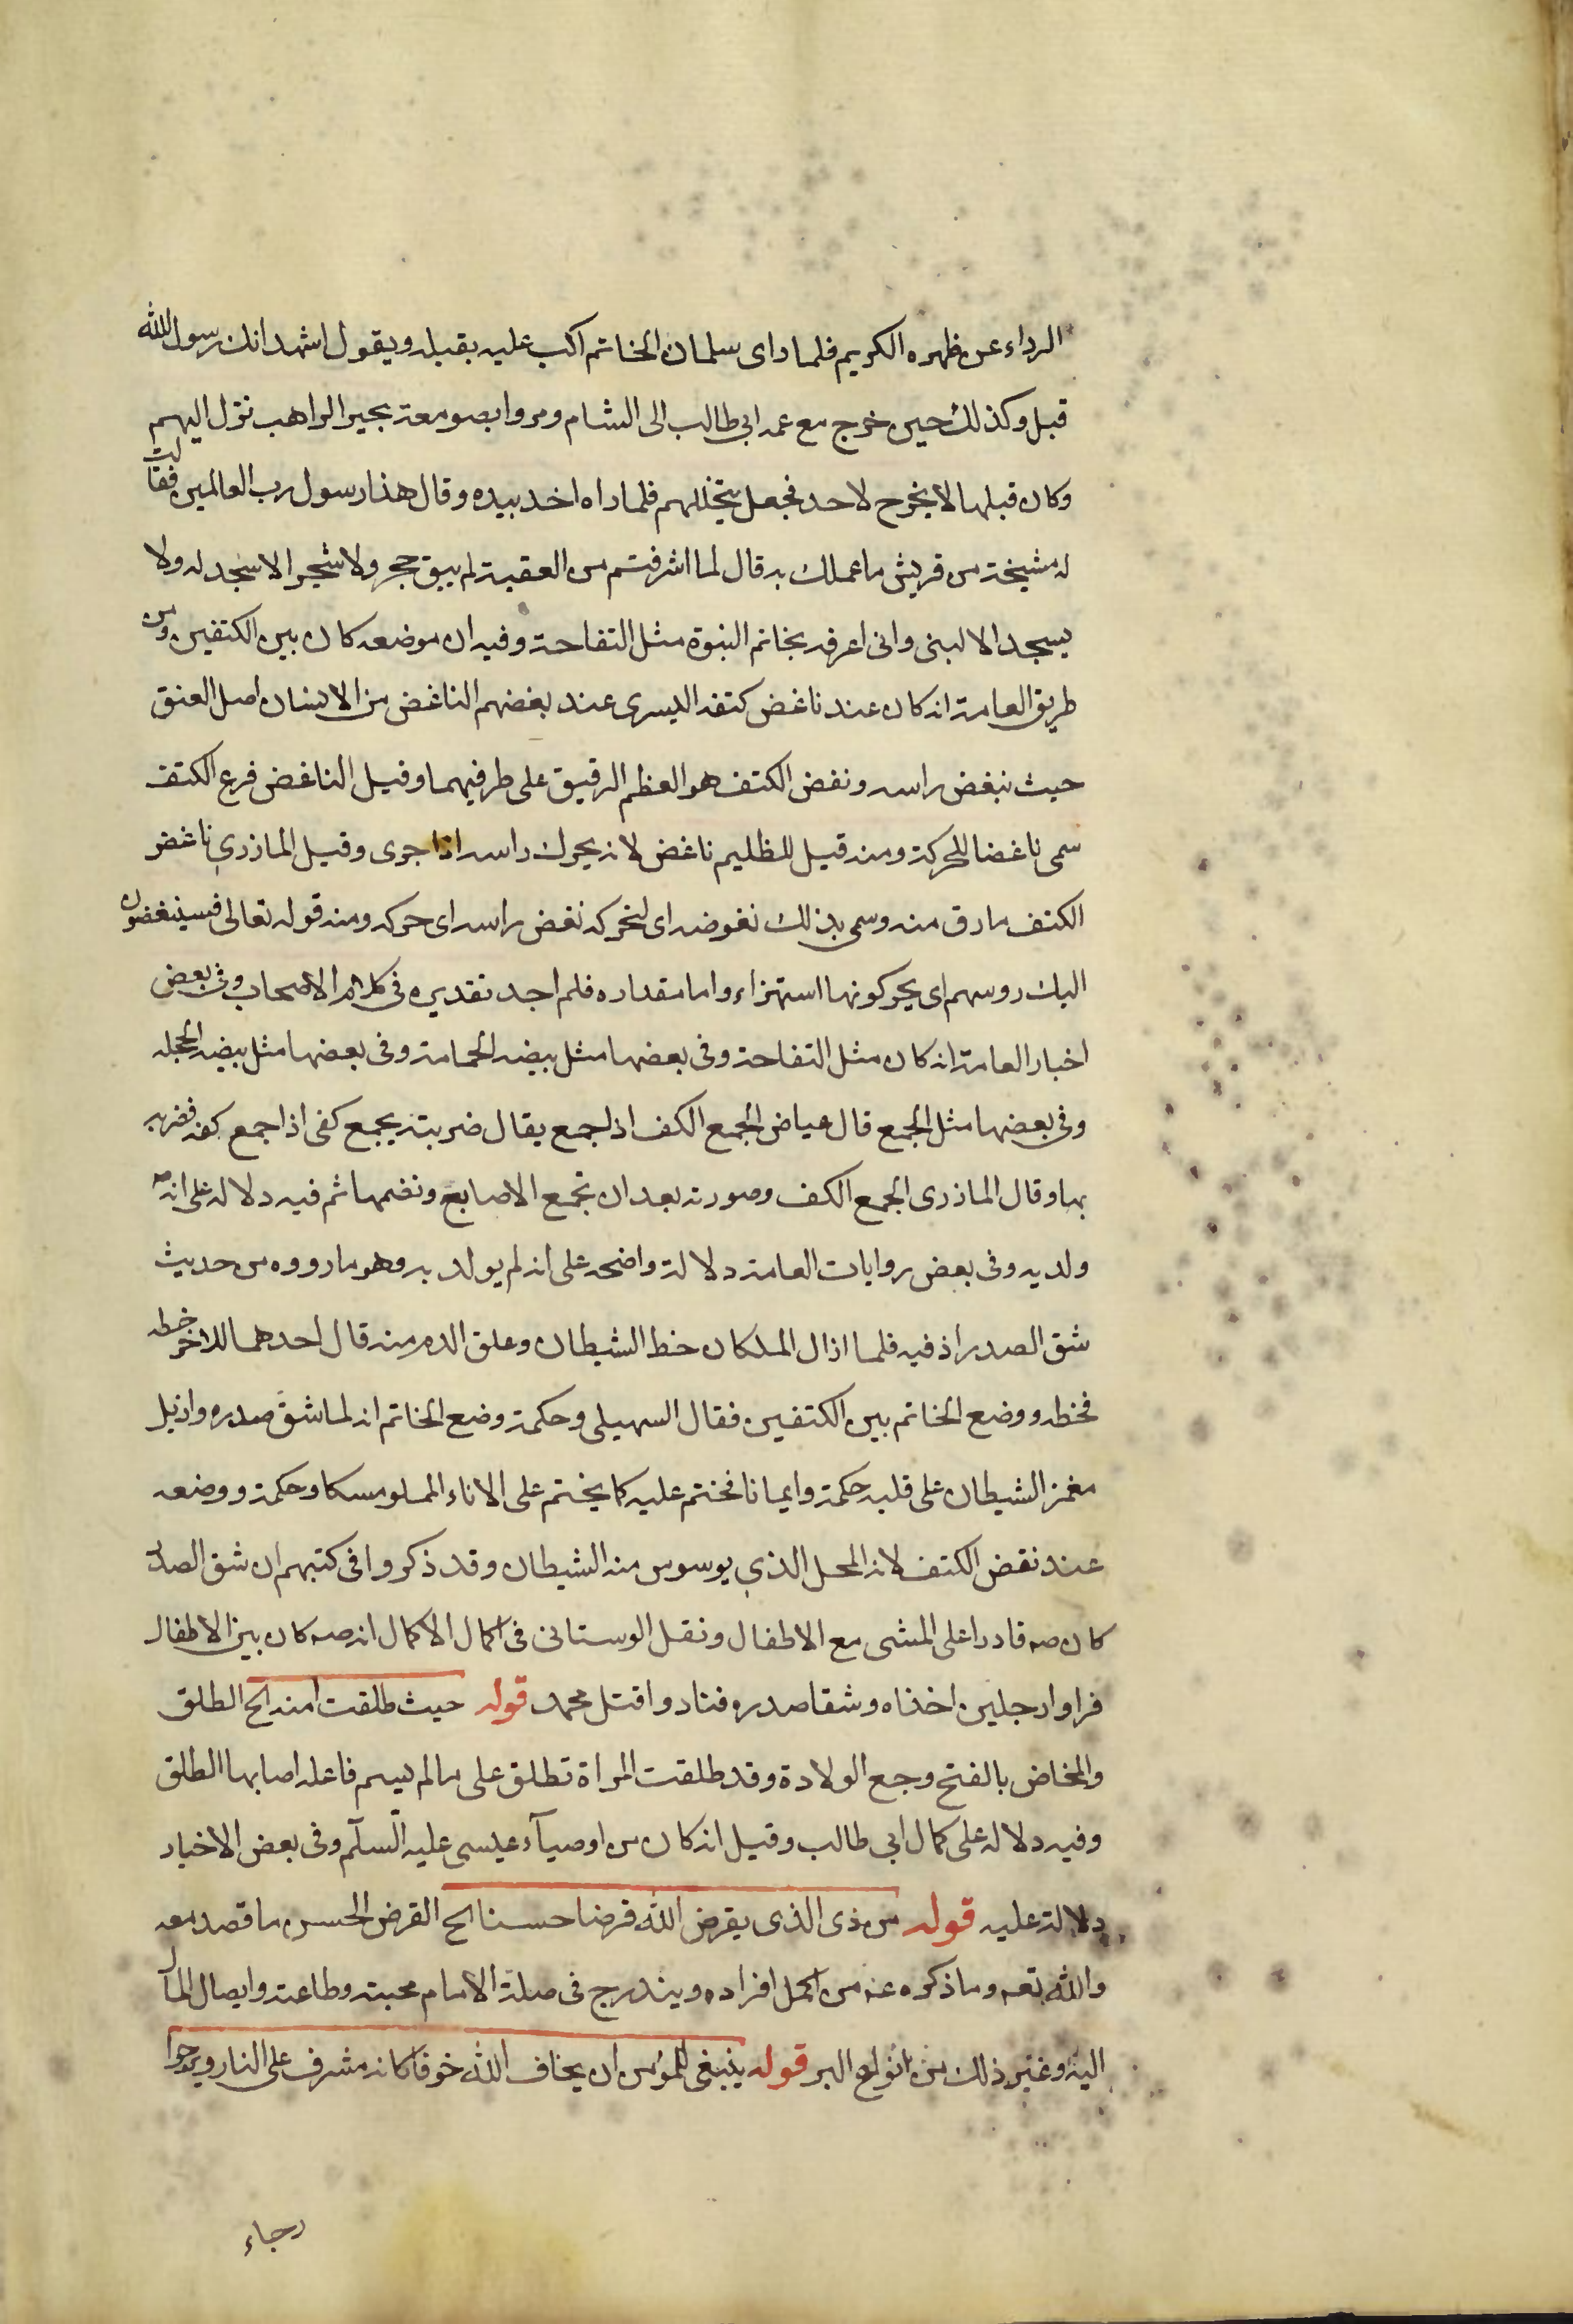 الرداء عن ظهره الكريم فلما راى سلمان الخاتم اكب عليه يقبله ويقول اشهد انك رسول الله
قبل وكذلك حين خرج مع عمه ابى طالب الى الشام ومروا بصومعة بحيرا الراهب نزل اليهم
وكان قبلها لا يخرج لاحد فجعل يتخللهم فلما راه اخذ بيده وقال هذا رسول رب العالمين فقالت
له مشيخة من قريش ما عملك به قال لما اشرفتم من العقبة لم يبق حجر ولا شجر الا سجد له ولا
يسجد الا لبنى وانى اعرفه بخاتم النبوة مثل التفاحة وفيه ان موضعه كان بين الكتفين ومن
طريق العامة انه كان عند ناغض كتفه اليسرى عند بغضهم الناغض من الانسان اصل العنق
حيث ينغض راسه ونغض الكتف هو العظم الرقيق على طرفيهما وقيل الناغض فرع الكتف
سمى ناغضا للحركة ومنه قيل للظليم ناغض لانه يحرك راسه اذا جرى وقيل المازري ناغض
الكتف مارق منه وسمى بذلك نغوضه اى لتحركه نغض راسه اى حركه ومنه قوله تعالى فسينغضون
اليك روسهم اى يحركونها استهزاء واما مقداره فلم اجد تقديره فى كلام الاصحاب وفى بعض
اخبار العامة انه كان مثل التفاحة وفى بعضها مثل بيضه الحمامة وفى بعضها مثل بيضه الحجله
وفى بعضها مثل الجمع قال عياض الجمع الكف اذا جمع يقال ضربته بجمع كفى اذا جمع كفه فضربه
بها وقال الماذرى الجمع الكف وصورته بعد ان تجمع الاصابع وتضمها ثم فيه دلاله على انه ص
ولد به وفى بعض روايات العامة دلالة واضحه على انه لم يولد به وهو ما رووه من حديث
شق الصدر اذ فيه فلما ازال الملكان حظ الشيطان وعلق الدم منه قال احدهما للاخر خطه
فخطه ووضع الخاتم بين الكتفين فقال السهيلى وحكمة وضع الخاتم انه لما شق صدره وازيل
مغمز الشيطان على قلبه حكمة وايمانا فختم عليه كما يختم على الاناء المملو مسكا وحكمة ووضعه
عند نقض الكتف لانه المحل الذي يوسوس منه الشيطان وقد ذكروا فى كتبهم ان شق الصدر
كان صه قادرا على المشى مع الاطفال ونقل الوستانى فى اكمال الاكمال انه صه كان بين الاطفال
فراوا رجلين اخذاه وشقا صدره فنادوا قتل محمد قوله حيث طلقت امنه الخ الطلق
والمخاض بالفتح وجع الولادة وقد طلقت المراة تطلق على ما لم يسم فاعله اصابها الطلق
وفيه دلاله على كمال ابى طالب وقيل انه كان من اوصياء عيسى عليه السلم وفى بعض الاخبار
دلالة عليه قوله من ذى الذى يقرض الله قرضا حسنا الخ القرض الحسن ما قصد معه
والله تعه وما ذكره عنه من اكمل افراده ويندرج فى صلة الامام محبته وطاعته وايصال المال
اليه وغير ذلك من انواع البر قوله ينبغى للمؤمن ان يخاف الله خوفا كانه مشرف على النار ويرجوا
رجاء